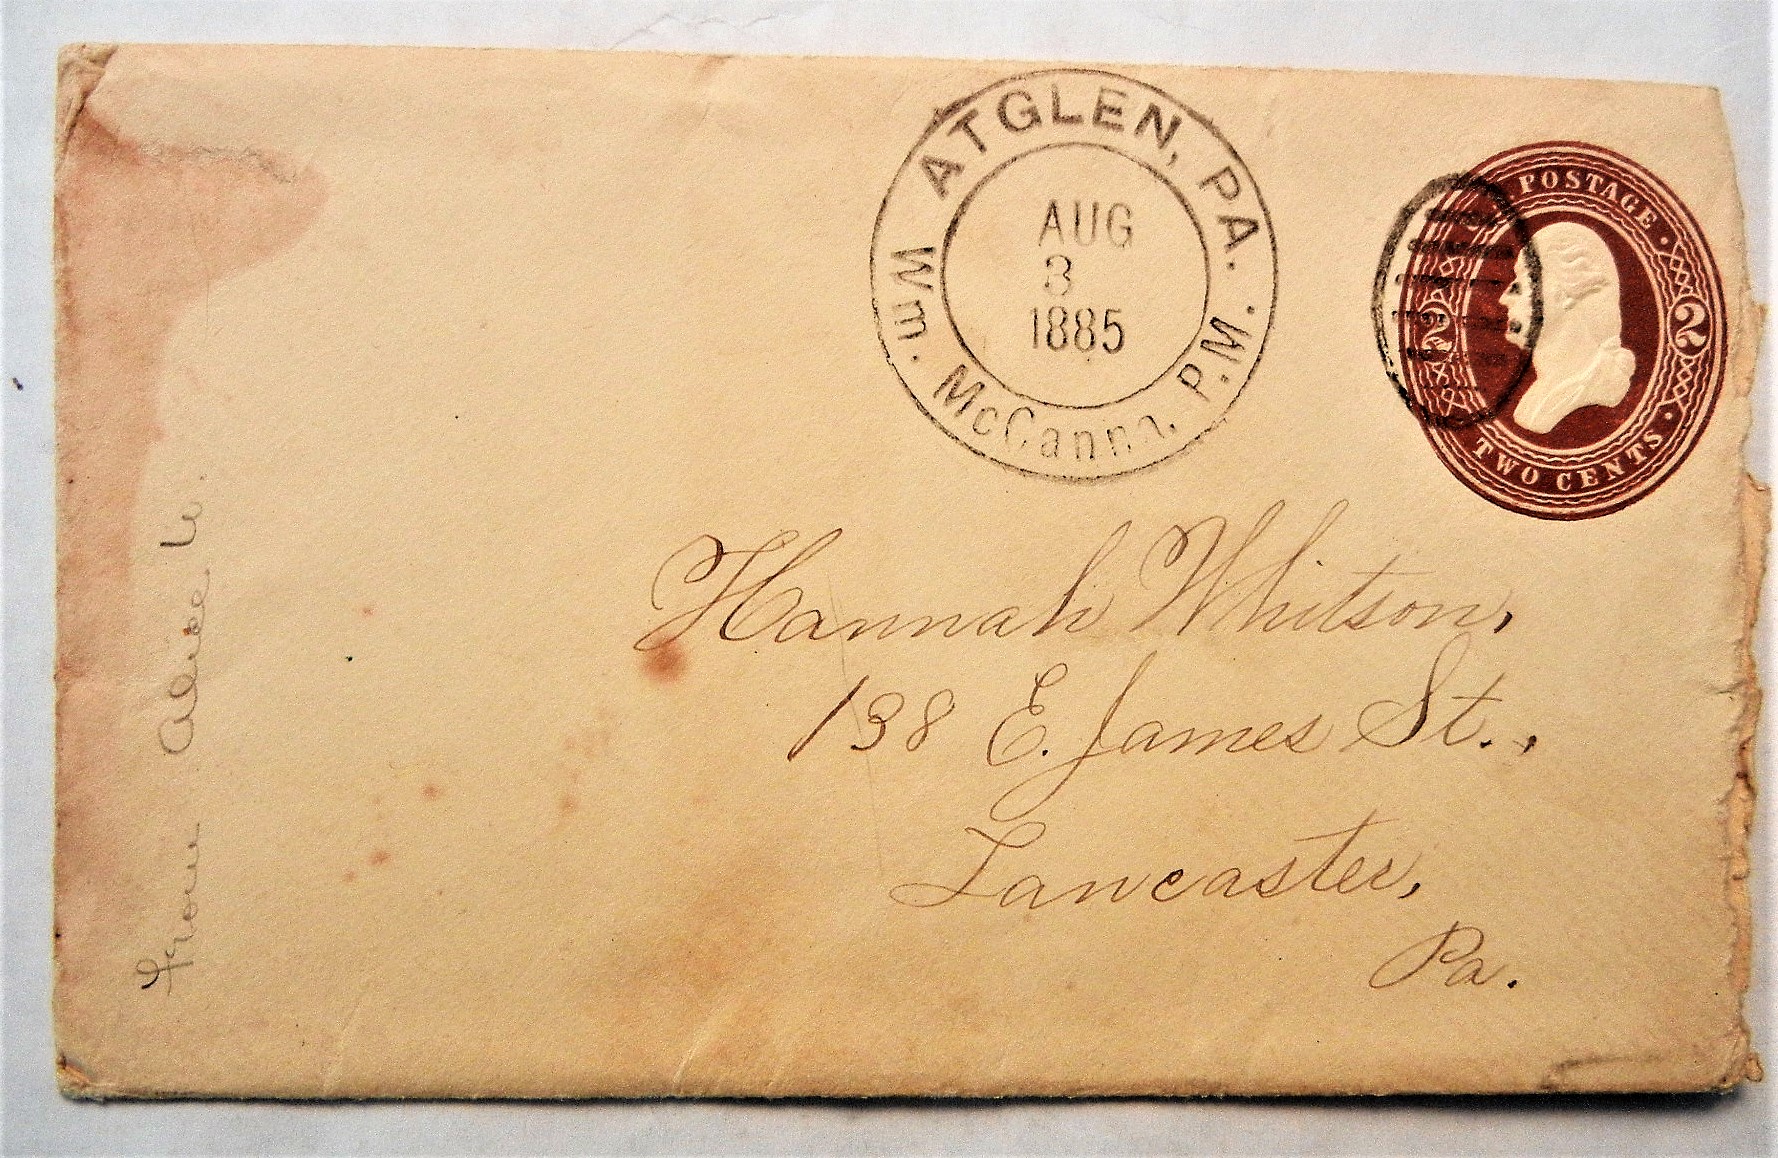 ATGLEN, PA.
AUG
3
1885
Wm. McCanna, P.M.
POSTAGE
2 2
TWO CENTS
Hannah Whitson,
138 E. James St.,
Lancaster,
Pa.
From Alice W.